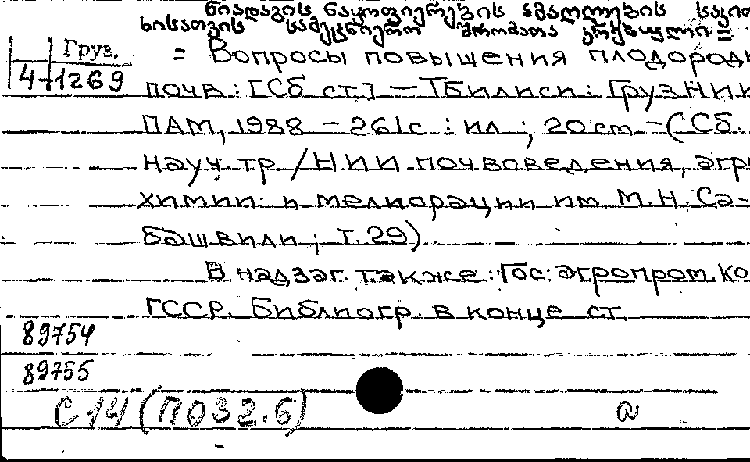 ნიადაგის ნაყოფიერების ამაღლების საკით
ხისათვის სამეცნიერო შრომათა კრებული =
Груз.
4-1269
= Вопросы повышения плодороди
почв: [Сб. ст.] — Тбилиси: ГрузНИИ
ПАМ, 1988 — 261с.: ил.; 20 cm — (Сб.
науч. тр. / НИИ почвоведения, агро
химии и мелиорации им. М.Н. Са-
башвили; Т. 29)
В надзаг. также: Гос. агропром. ко
ГССР. Библиогр. в конце ст.
89754
89755
С14 (П032.6)
a